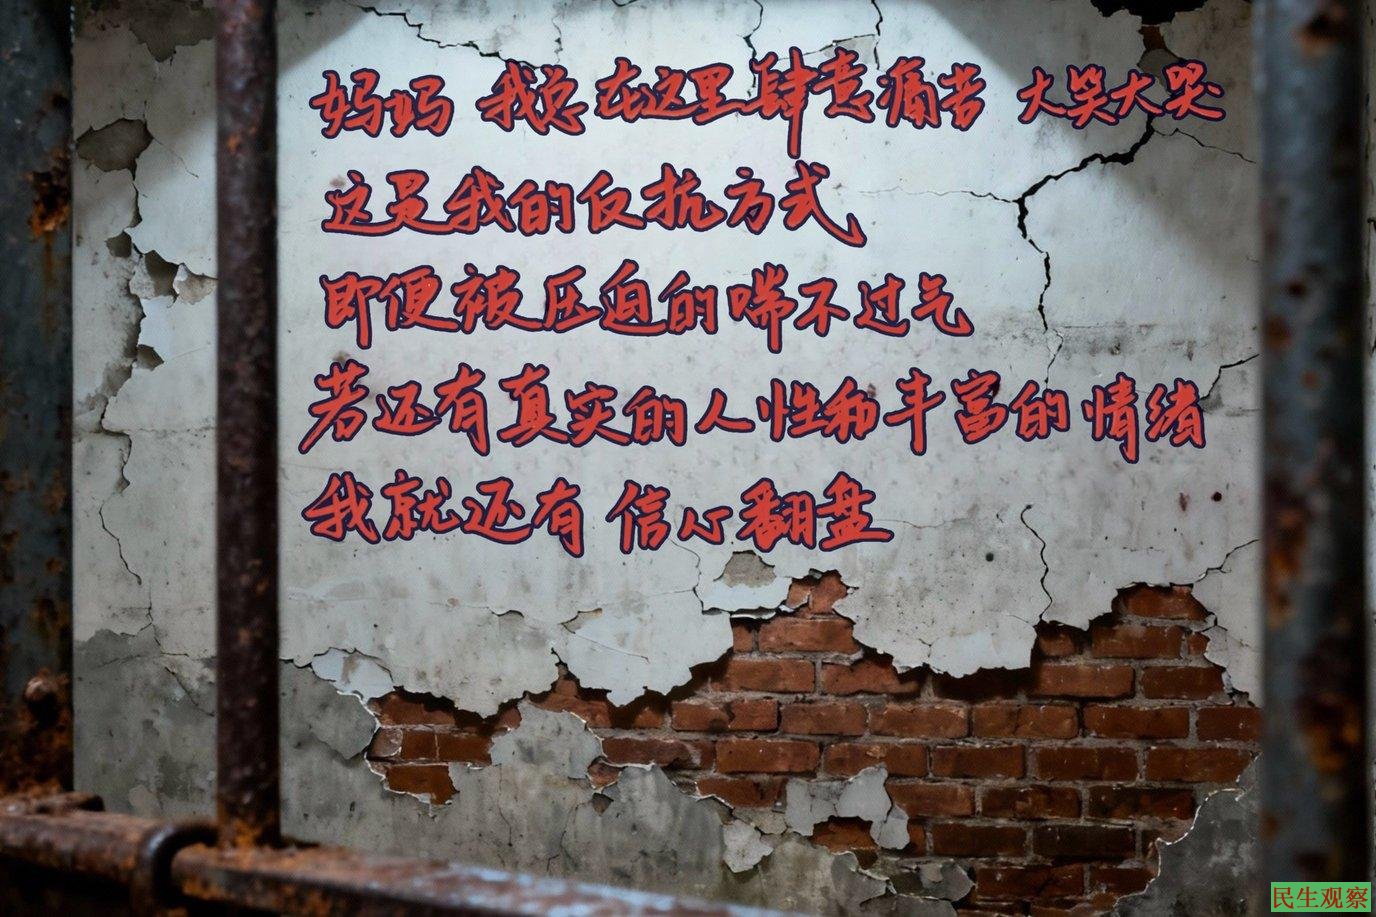 妈妈 我总在这里肆意痛苦 大笑大哭
这是我的反抗方式
即便被压迫的喘不过气
若还有真实的人性和丰富的情绪
我就还有信心翻盘
民生观察